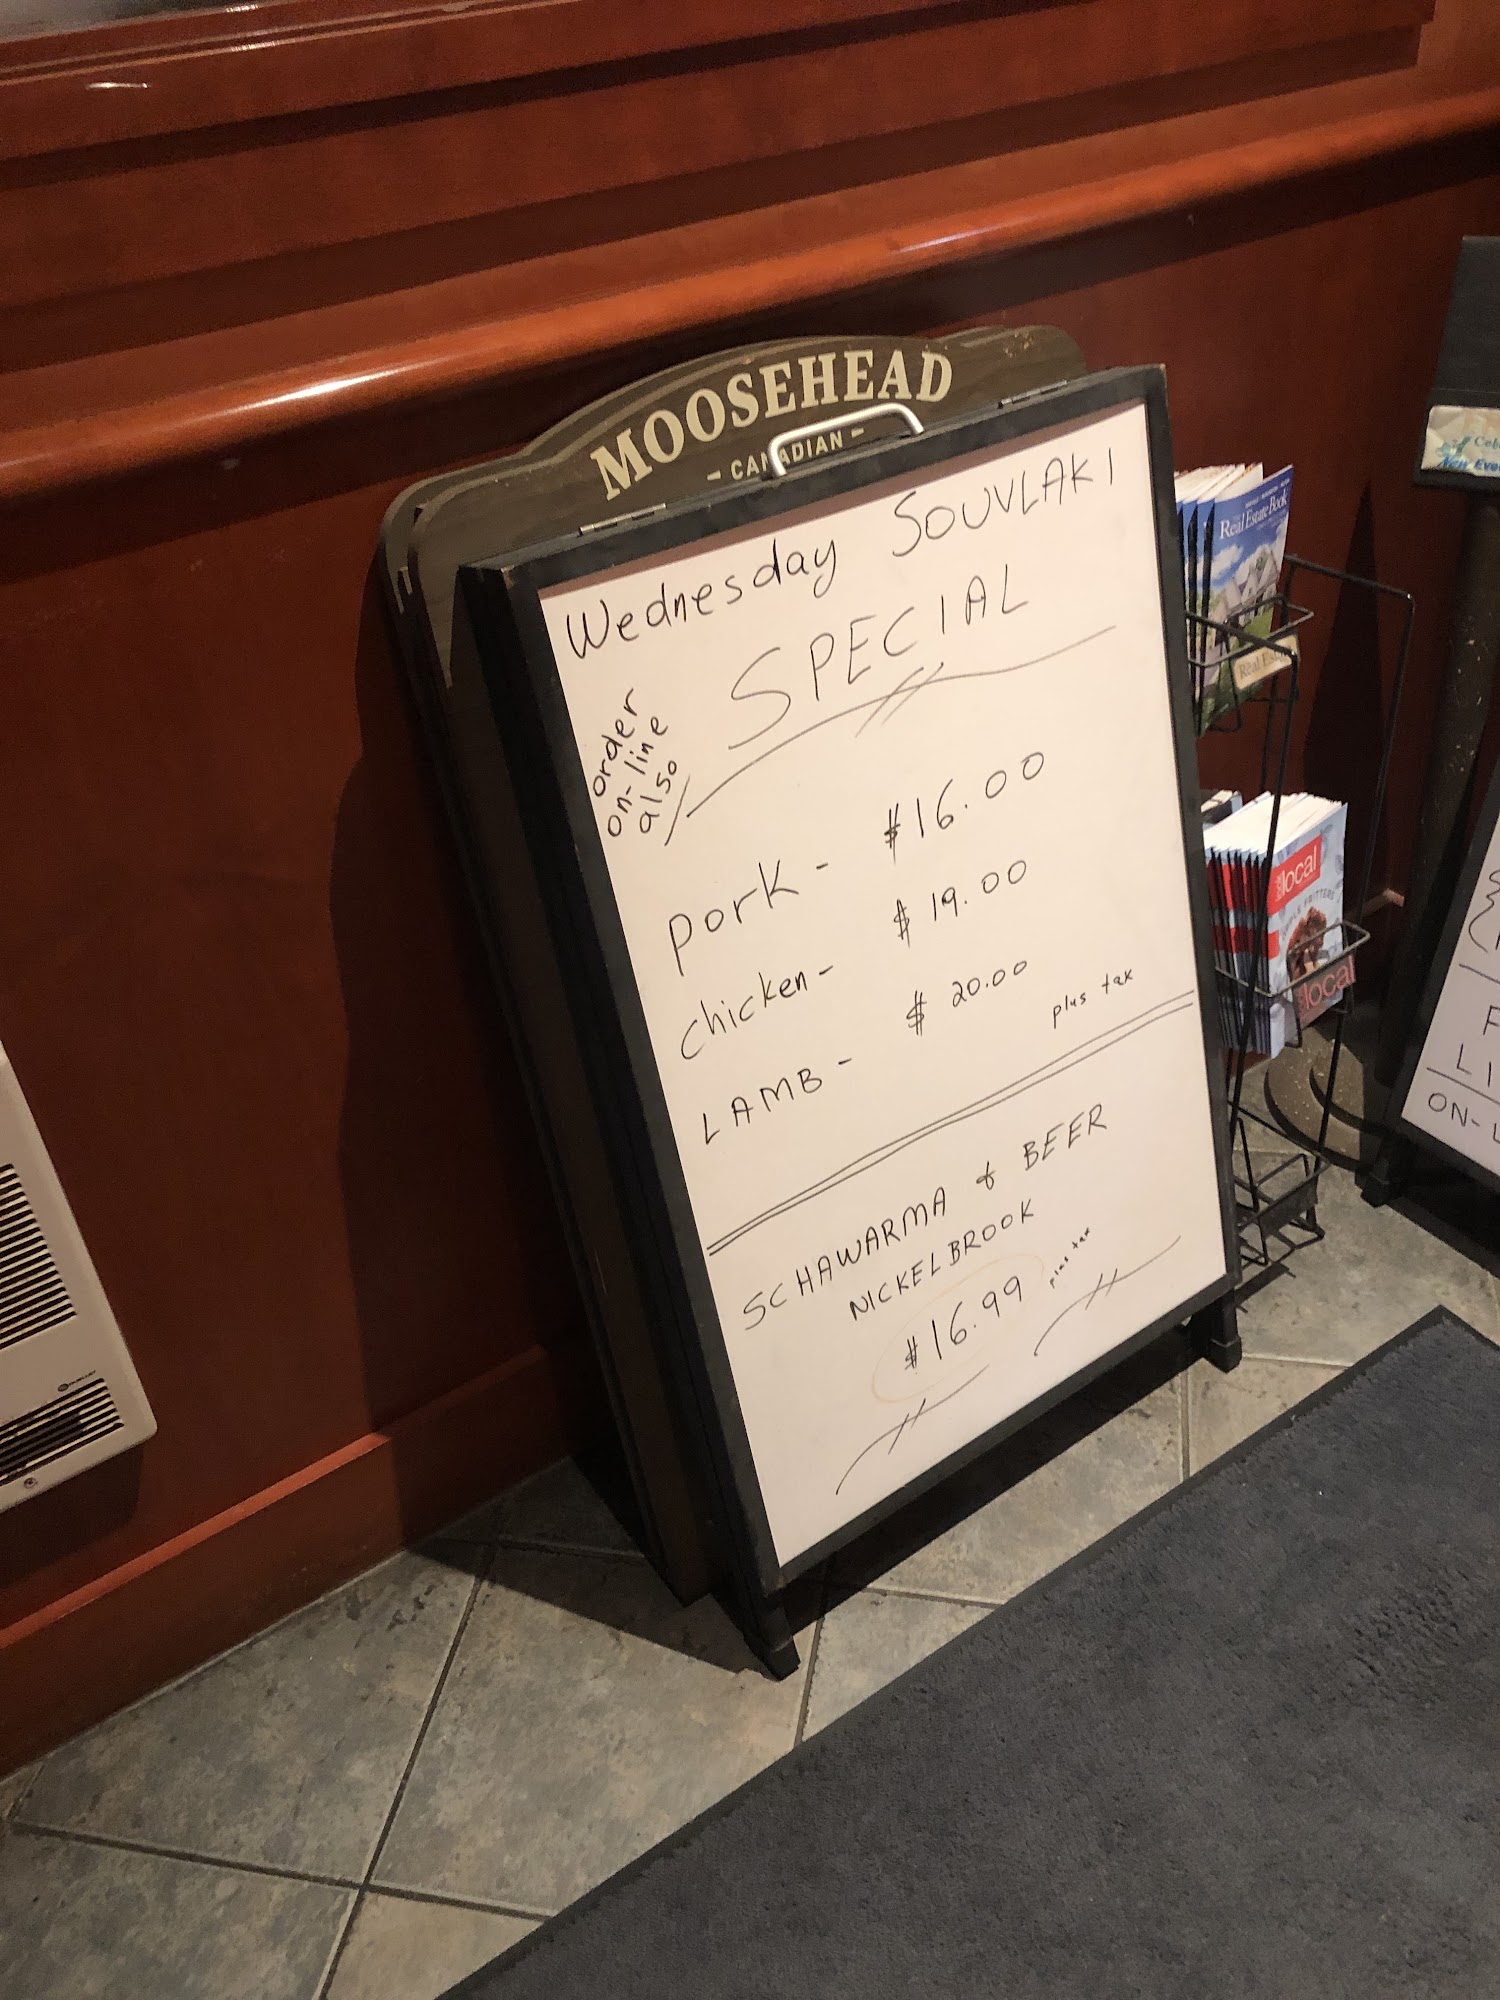 MOOSEHEAD
- CANADIAN -
Wednesday SOUVLAKI
SPECIAL
order
on-line
also
pork - $16.00
chicken - $19.00
LAMB - $20.00
plus tax
SCHAWARMA & BEER
NICKELBROOK
$16.99 plus tax
Real Estate Book
Real Estate
local
local
ON-L